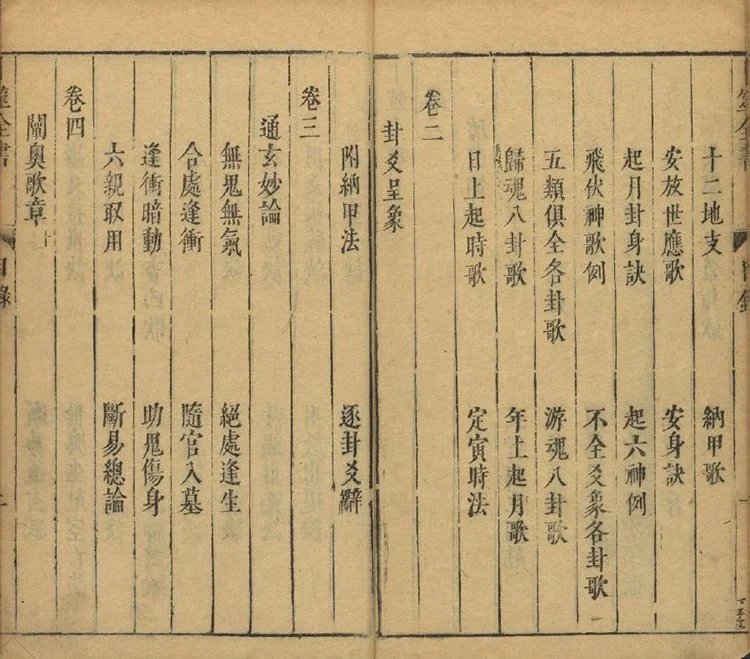 十二地支 納甲歌
安放世應歌 安身訣
起月卦身訣 起六神例
飛伏神歌例 不全爻象各卦歌
五類俱全各卦歌 游魂八卦歌
歸魂八卦歌 年上起月歌
日上起時歌 定寅時法
卷二
卦爻呈象
附納甲法 逐卦爻辭
卷三
通玄妙論
無鬼無氣 絕處逢生
合處逢衝 隨官入墓
逢衝暗動 助鬼傷身
六親取用 斷易總論
卷四
闡奧歌章
筮全書 目錄 一